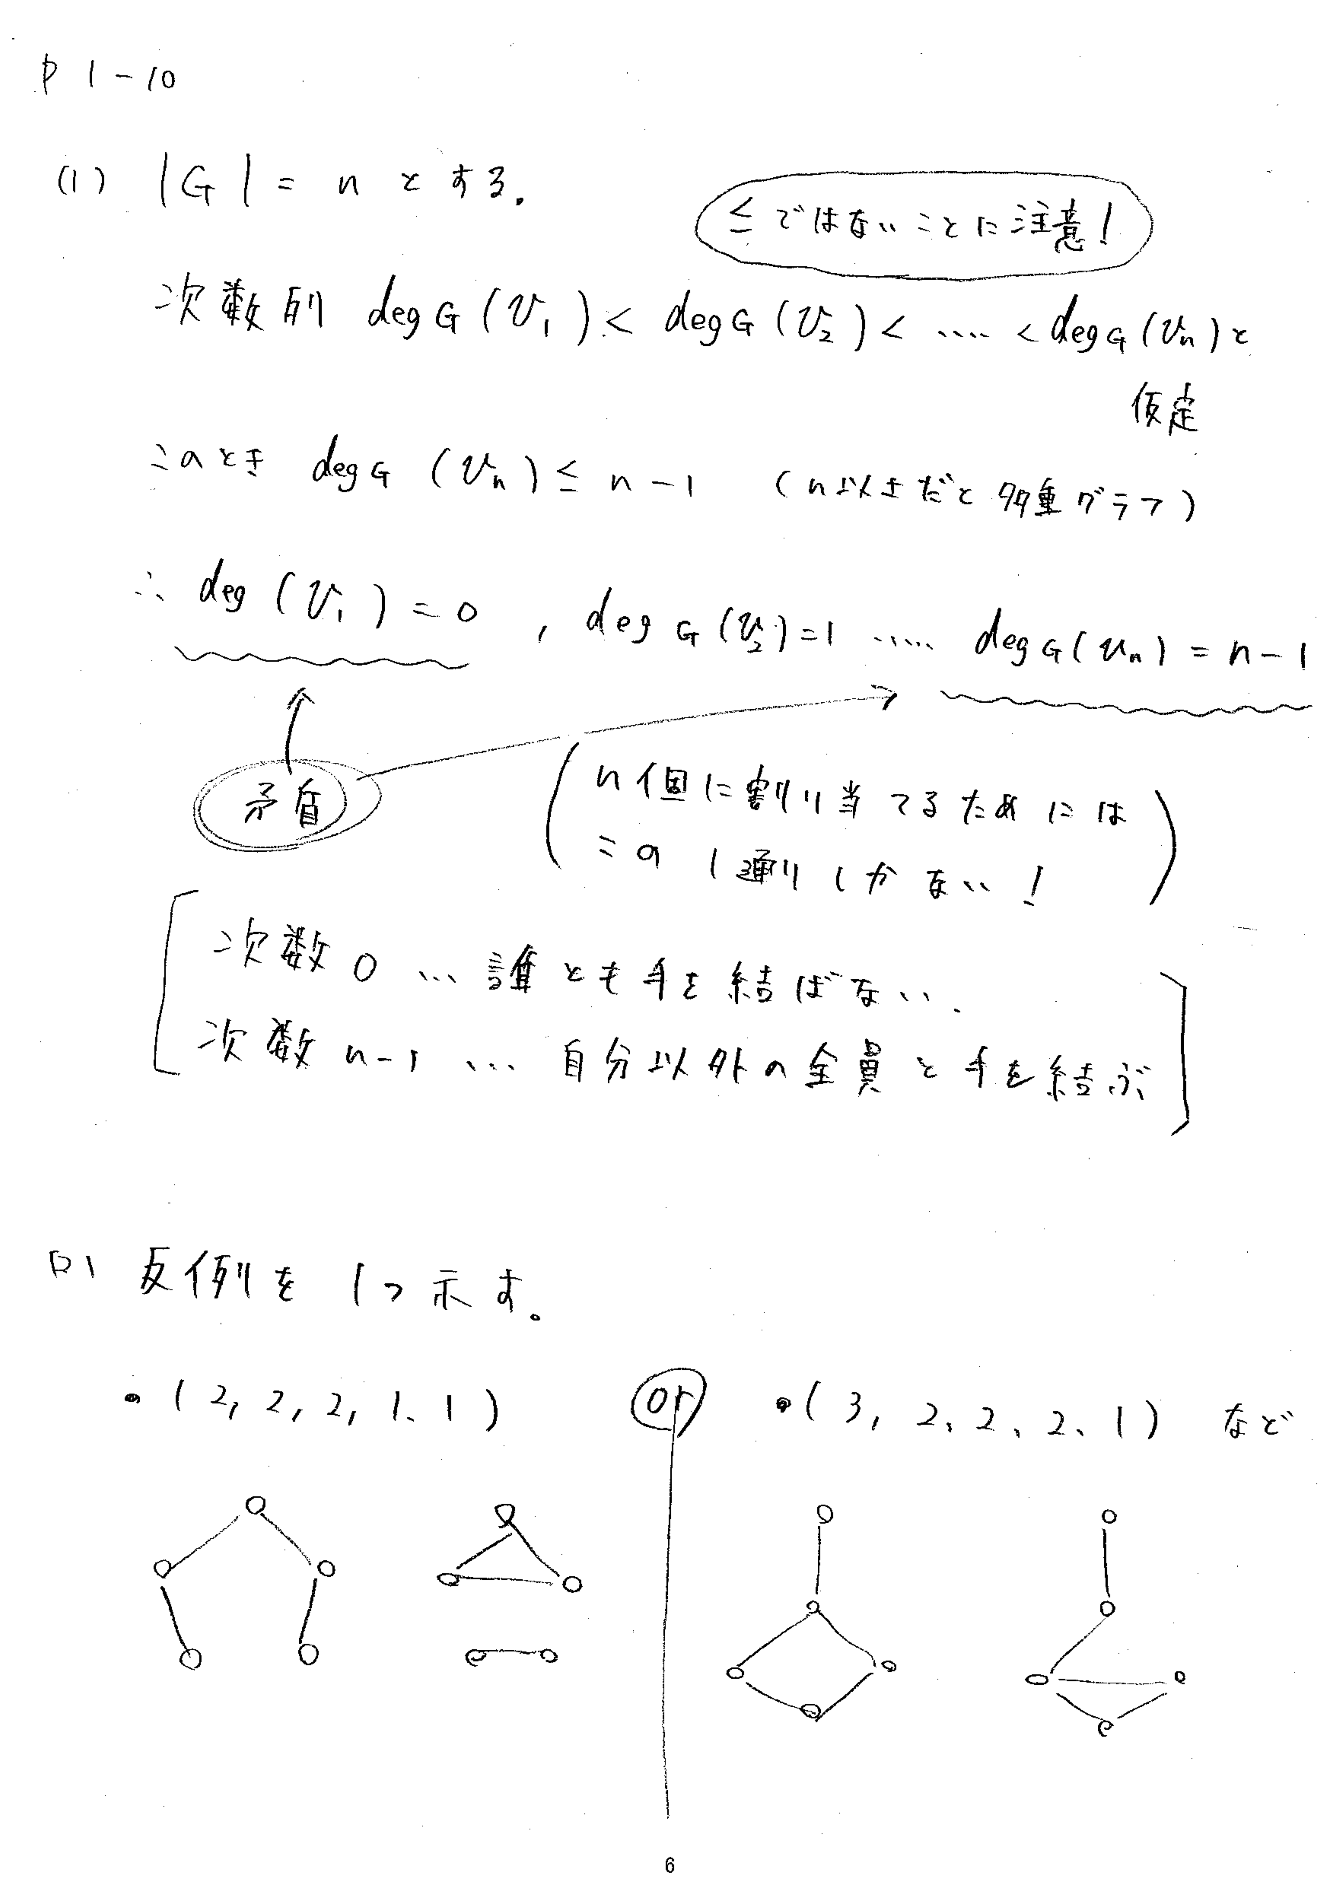 P 1-10
(1) |G| = n とする。
≤ ではないことに注意!
次数列 deg G (v₁) < deg G (v₂) < ‥‥ < deg G (vₙ) と
仮定
このとき deg G (vₙ) ≤ n-1 (n以上だと多重グラフ)
∴ deg (v₁) = 0 , deg G (v₂) = 1 ‥‥ deg G (vₙ) = n-1
矛盾
(n個に割り当てるためには
この1通りしかない!)
[次数 0 … 誰とも手を結ばない.
次数 n-1 … 自分以外の全員と手を結ぶ]
反例を1つ示す。
・(2, 2, 2, 1, 1) or ・(3, 2, 2, 2, 1) など
6